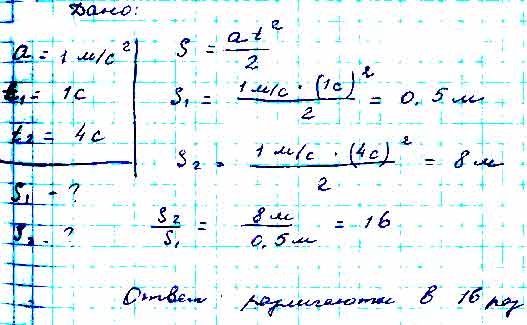 Дано:
a = 1 м/с²
t₁ = 1с
t₂ = 4с
S₁ - ?
S₂ - ?
S = at²/2
S₁ = 1 м/с · (1с)²/2 = 0.5 м
S₂ = 1 м/с · (4с)²/2 = 8 м
S₂/S₁ = 8 м/0.5 м = 16
Ответ: различаются в 16 раз